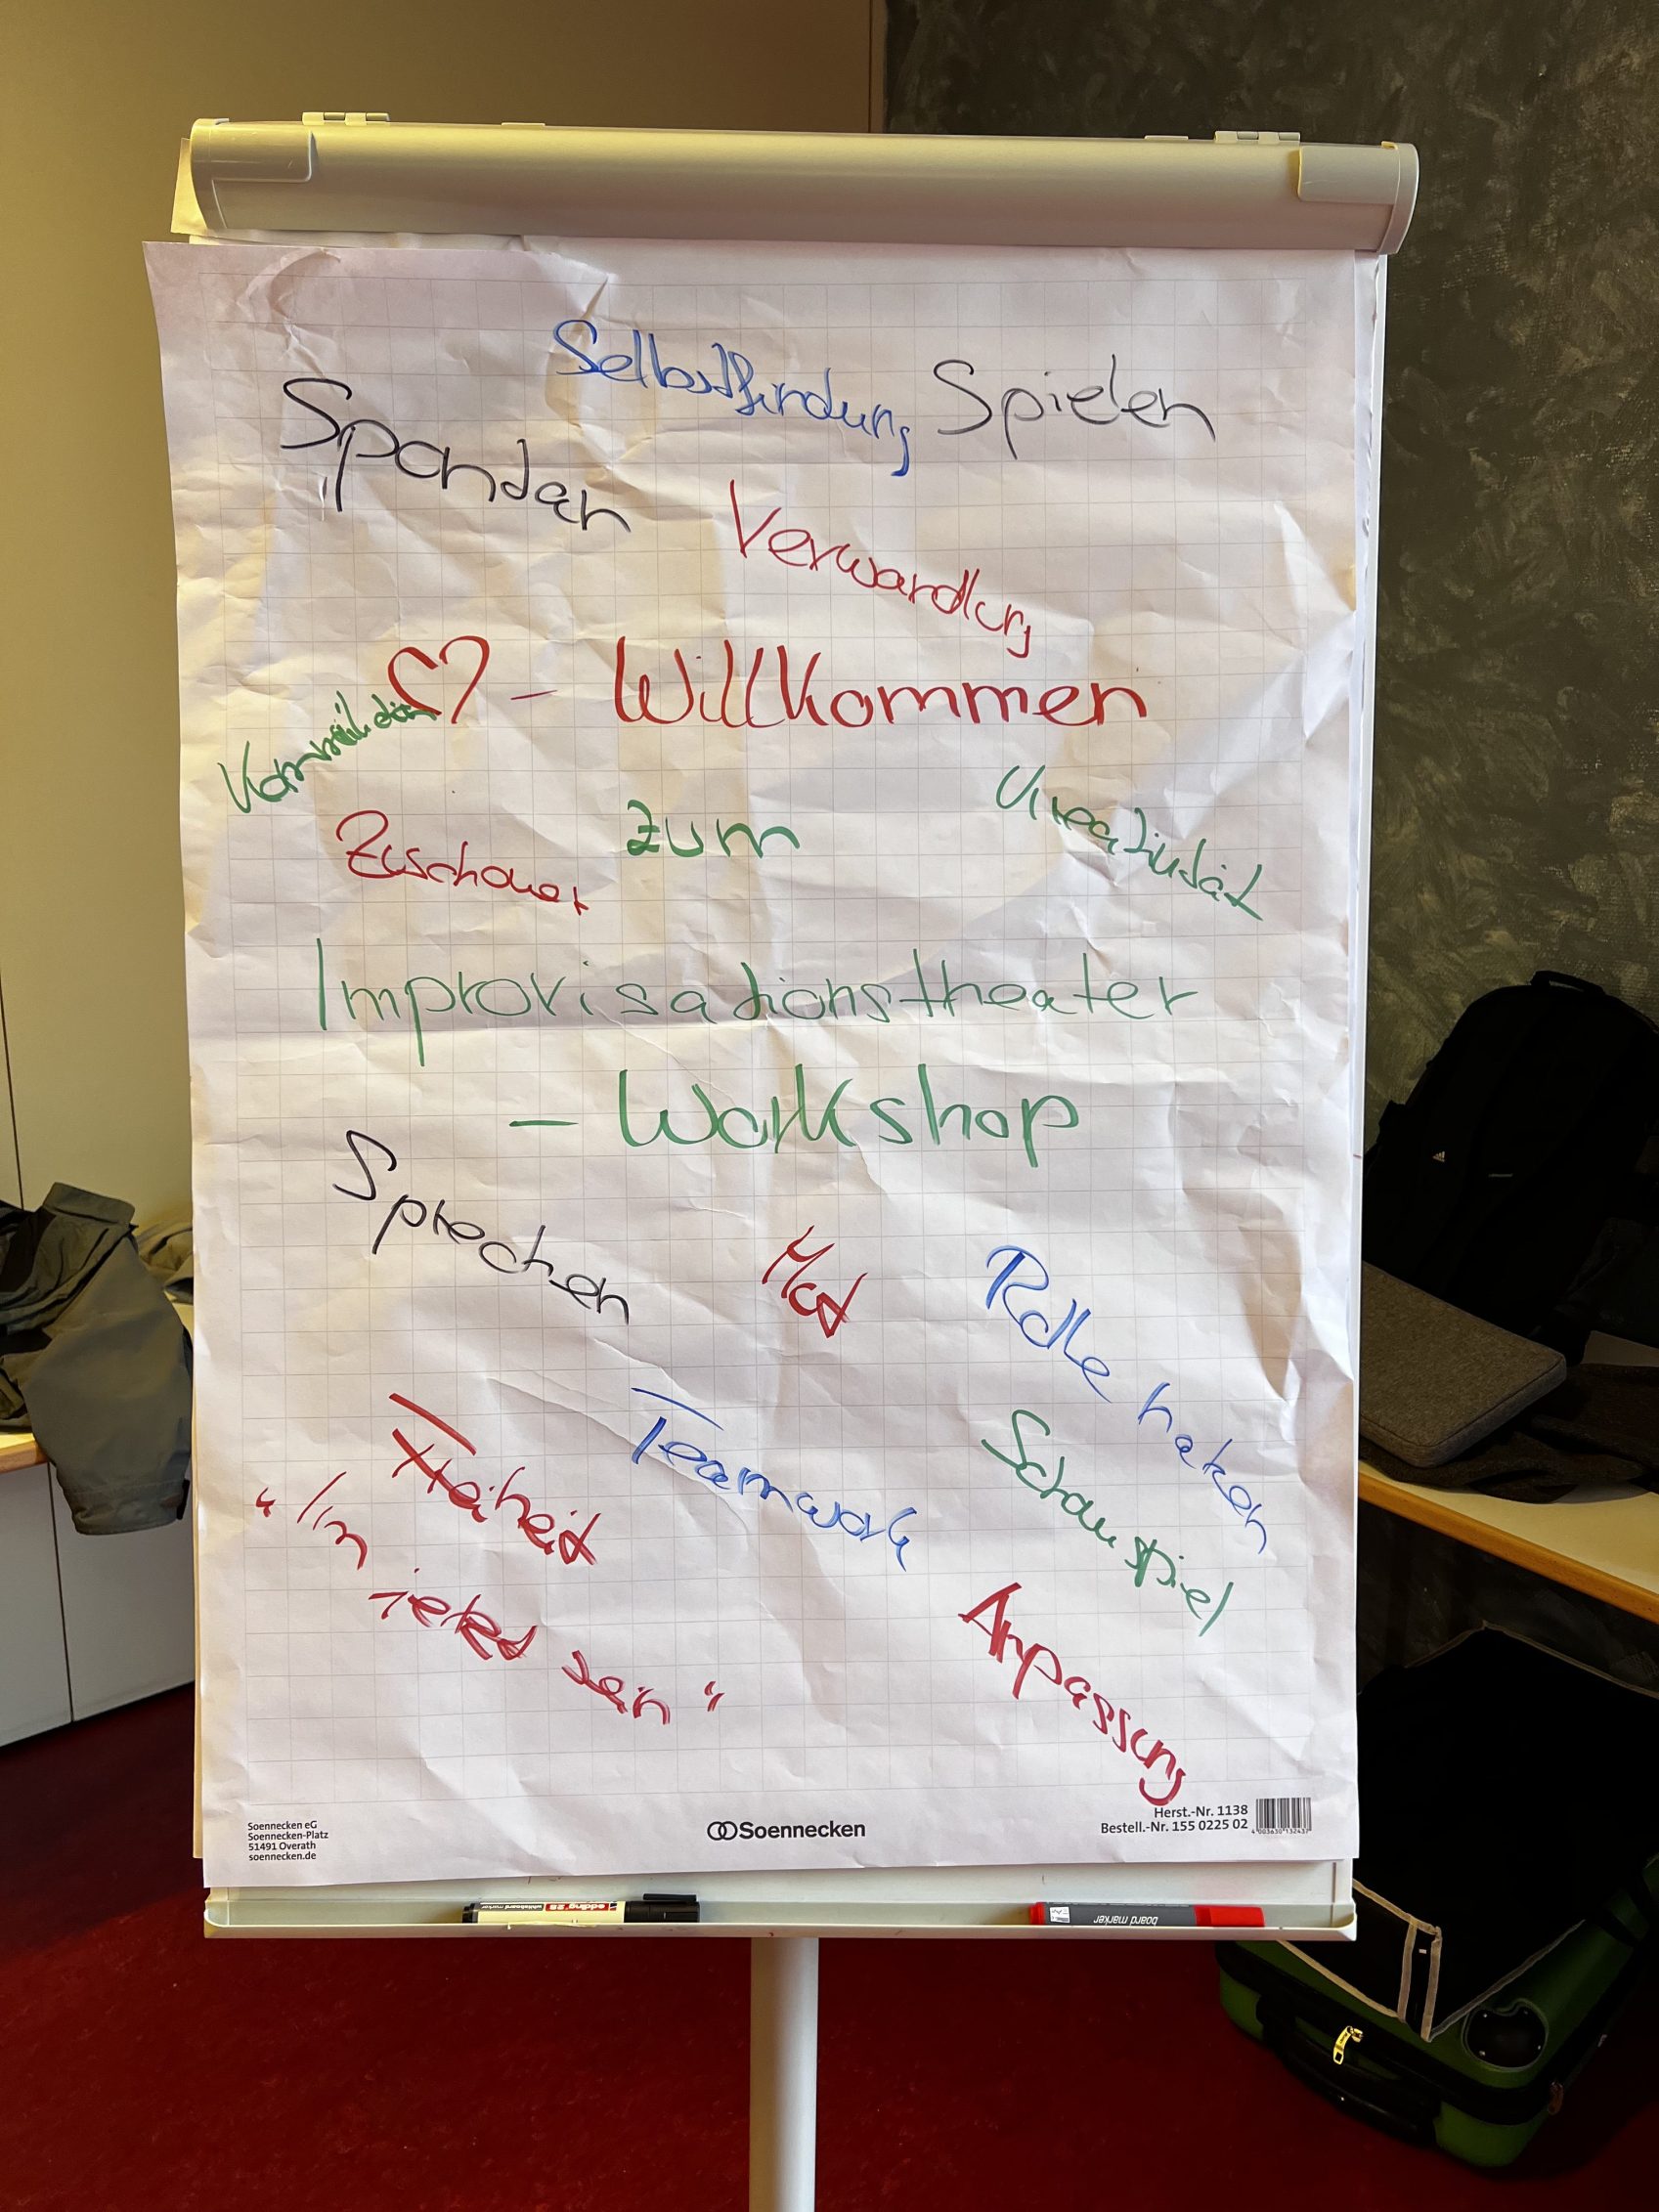 Selbstfindung
Spielen
Spontan
Verwandlung
- Willkommen
Kreativität
zum
Zuschauer
Improvisationstheater
- Workshop
Sprechen
Mut
Rolle haben
Teamwork
Freiheit
Schauspiel
"Im jetzt sein"
Anpassung
Soennecken eG
Soennecken-Platz
51491 Overath
soennecken.de
Soennecken
Herst.-Nr. 1138
Bestell.-Nr. 155 0225 02
edding 28
whiteboard marker
board marker